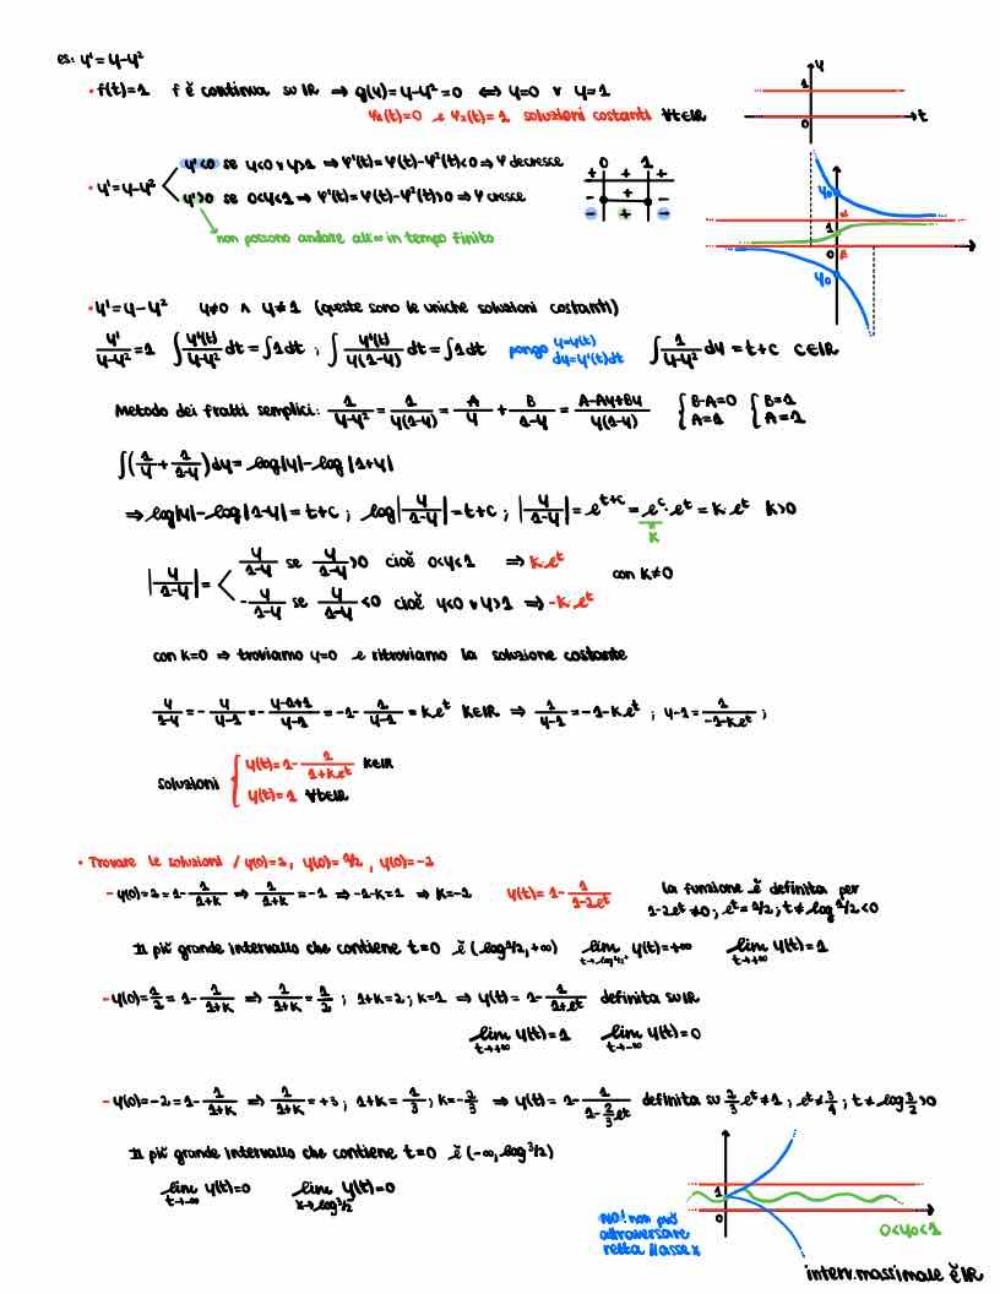 es: y' = y-y²
• f(t)=1 f è continua su ℝ ⇒ g(y)= y-y² =0 ⇔ y=0 ∨ y=1
y₁(t)=0 e y₂(t)= 1 soluzioni costanti ∀t∈ℝ
y
1
0
t
• y'= y-y²
y'<0 se y<0 ∨ y>1 ⇒ φ'(t)= φ(t)-φ²(t)<0 ⇒ φ decresce
y'>0 se 0<y<1 ⇒ φ'(t)= φ(t)-φ²(t)>0 ⇒ φ cresce
non possono andare all'∞ in tempo finito
0 1
+ + +
- + -
y₀
1
0
y₀
• y'= y-y² y≠0 ∧ y≠1 (queste sono le uniche soluzioni costanti)
y'/(y-y²) = 1 ∫ y'(t)/(y-y²) dt = ∫1dt ; ∫ y'(t)/(y(1-y)) dt = ∫1dt pongo y=y(t) dy=y'(t)dt ∫ 1/(y-y²) dy = t+c c∈ℝ
Metodo dei fratti semplici: 1/(y-y²) = 1/(y(1-y)) = A/y + B/(1-y) = (A-Ay+By)/(y(1-y)) { B-A=0 A=1 { B=1 A=1
∫(1/y + 1/(1-y))dy= log|y|-log|1+y|
⇒ log|y|-log|1-y|= t+c ; log|y/(1-y)|=t+c ; |y/(1-y)|= e^(t+c) = e^c · e^t = K·e^t K>0
K
|y/(1-y)| =
y/(1-y) se y/(1-y) >0 cioè 0<y<1 ⇒ K·e^t
-y/(1-y) se y/(1-y) <0 cioè y<0 ∨ y>1 ⇒ -K·e^t
con K≠0
con K=0 ⇒ troviamo y=0 e ritroviamo la soluzione costante
y/(1-y) = -y/(y-1) = -(y-1+1)/(y-1) = -1-1/(y-1) = K·e^t K∈ℝ ⇒ 1/(y-1) = -1-K·e^t ; y-1 = 1/(-1-K·e^t) ;
soluzioni { y(t)= 1- 1/(1+K·e^t) K∈ℝ
y(t)= 1 ∀t∈ℝ
• Trovare le soluzioni / y(0)=2, y(0)= 1/2 , y(0)=-2
- y(0)=2= 1- 1/(1+K) ⇒ 1/(1+K) = -1 ⇒ -1-K=1 ⇒ K=-2 y(t)= 1- 1/(1-2e^t) la funzione è definita per
1-2e^t ≠0 ; e^t= 1/2 ; t≠ log 1/2 <0
Il più grande intervallo che contiene t=0 è (log 1/2, +∞) lim t→log 1/2⁺ y(t)=+∞ lim t→+∞ y(t)= 1
- y(0)= 1/2 = 1- 1/(1+K) ⇒ 1/(1+K) = 1/2 ; 1+K=2 ; K=1 ⇒ y(t)= 1- 1/(1+e^t) definita su ℝ
lim t→+∞ y(t)= 1 lim t→-∞ y(t)= 0
- y(0)=-2= 1- 1/(1+K) ⇒ 1/(1+K) = +3 ; 1+K= 1/3 ; K=-2/3 ⇒ y(t)= 1- 1/(1-2/3 e^t) definita su 2/3 e^t ≠1 ; e^t≠ 3/4 ; t≠ log 3/2 >0
Il più grande intervallo che contiene t=0 è (-∞, log 3/2)
lim t→-∞ y(t)=0 lim x→log 3/2 y(t)=0
1
0
NO! non può
attraversare
retta // asse x
0<y₀<1
interv. massimale è ℝ